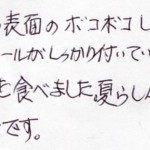 の表面のボコボコし
ールがしっかり付いてい
を食べました。夏らしん
です。